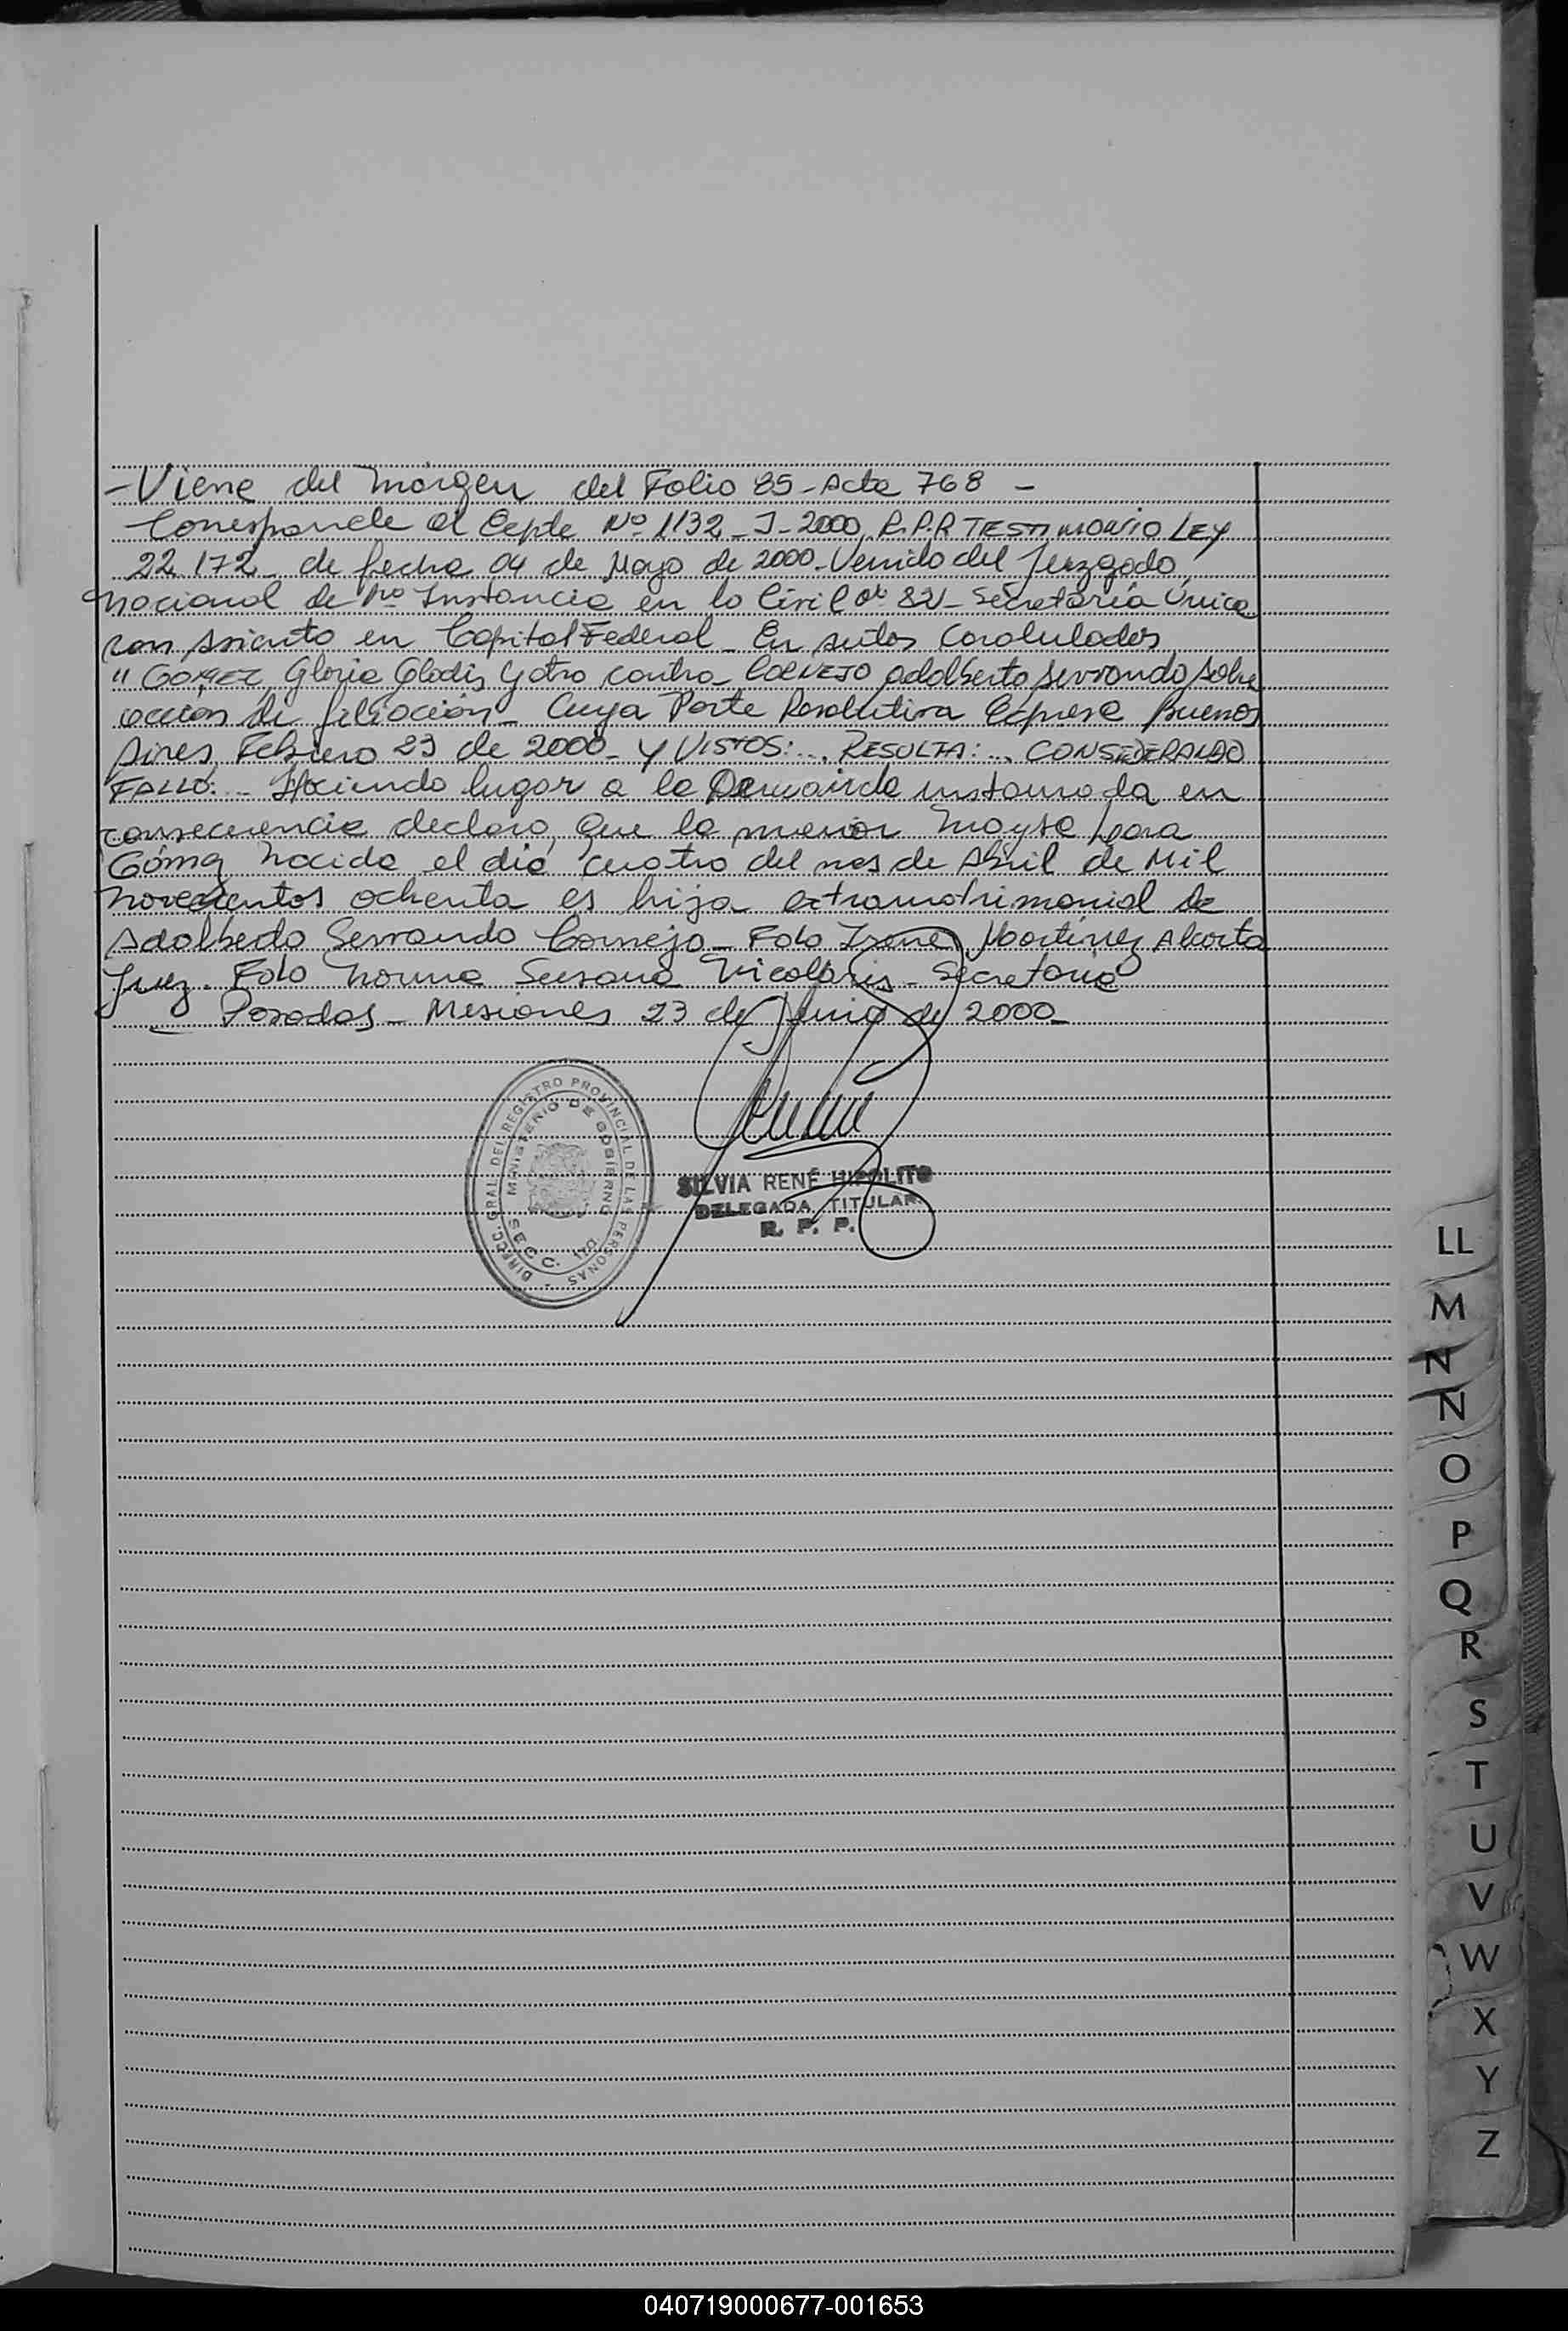 -Viene del márgen del Folio 85-Acta 768 -
Corresponde al Expte Nº 1132-J-2000, R.P.P. TESTIMONIO LEY
22 172 de fecha 04 de Mayo de 2000. Venido del Juzgado
Nacional de 1ra Instancia en lo Civil Nº 82- Secretaría Única
con Asiento en Capital Federal - En Autos Caratulados
" GOMEZ Gloria Gladis y otro contra CORNEJO Adalberto Servando sobre
accion de filiación - Cuya Parte Resolutiva Expresa Buenos
Aires, Febrero 23 de 2000- Y VISTOS:... RESULTA:... CONSIDERANDO
FALLO:... Haciendo lugar a la Demanda instaurada en
consecuencia declaro, Que la menor Mayra Lara
Gómez Nacida el día Cuatro del mes de Abril de Mil
Novecientos ochenta es hija extramatrimonial de
Adalberto Servando Cornejo- Fdo Irene Martínez Alcorta
Juez. Fdo Norma Susana Nicolaris - Secretaria
Posadas - Misiones 23 de Junio de 2000-
DIRECC. GRAL. DEL REGISTRO PROVINCIAL DE LAS PERSONAS -
MINISTERIO DE GOBIERNO
SILVIA RENÉ HIPOLITO
DELEGADA TITULAR
R. P. P.
LL
M
N
Ñ
O
P
Q
R
S
T
U
V
W
X
Y
Z
040719000677-001653